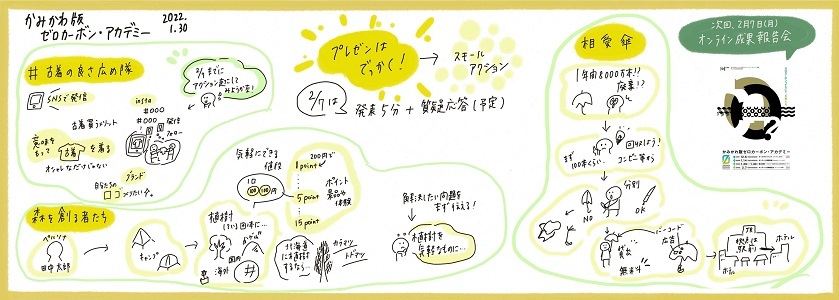 かみかわ版
ゼロカーボン・アカデミー
2022.
1.30
プレゼンは
でっかく!
スモール
アクション
2/7は
発表5分+質疑応答(予定)
#古着の良さ広め隊
SNSで発信
古着買うメリット
意味を
もって
古着
を着る
オシャレなだけじゃない
insta
#000
#000
発信
ブランド
森を創る者たち
ペルソナ
田中太郎
キャンプ
植樹
国内
海外
気軽にできる
値段
1口
100
100
円
200円で
1 point
5 point
15 point
ポイント
景品や
体験
北海道
に植樹
するなら…
カラマツ
トドマツ
解決したい問題を
まず伝える!
植樹を
気軽なものに…
相愛傘
1年間8000万本!!
廃棄!?
まず
100本くらい…
回収しよう!
コンビニ等から
分別
NO
OK
バーコード
広告
貸出
無料
駅
ホテル
ホテル
次回、2月7日(月)
オンライン成果報告会
かみかわ版ゼロカーボン・アカデミー